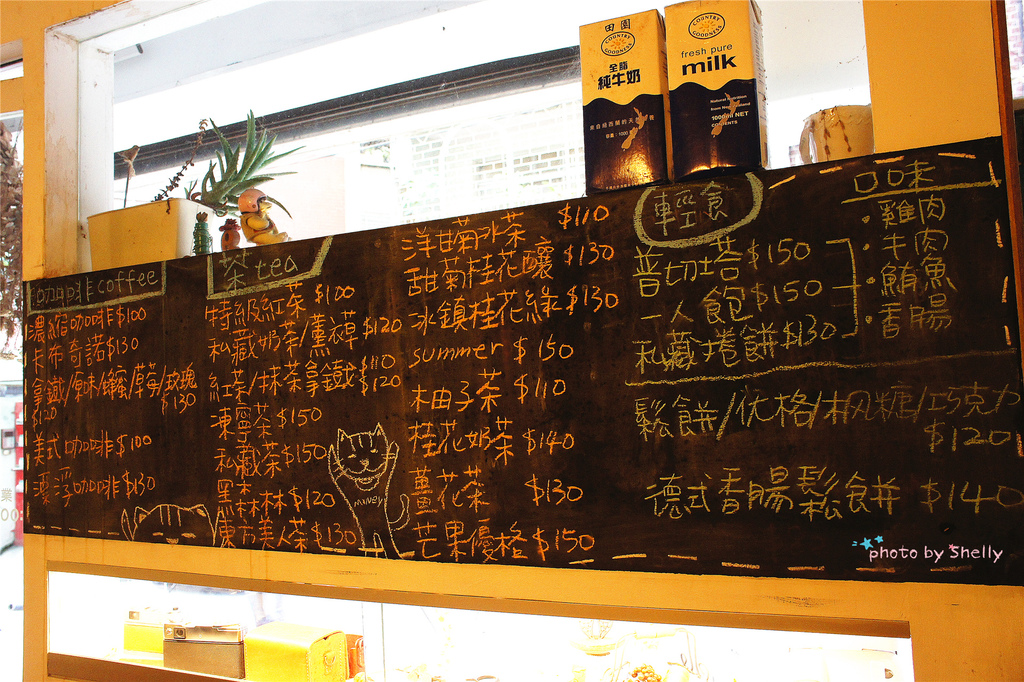 田園
COUNTRY GOODNESS
全脂
純牛奶
COUNTRY GOODNESS
fresh pure
milk
咖啡 coffee
濃縮咖啡$100
卡布奇諾$130
拿鐵/原味/蜂蜜/草莓/玫瑰
$120
$130
美式咖啡$100
漂浮咖啡$130
茶 tea
特級紅茶 $100
私藏奶茶/薰衣草 $120
紅茶/抹茶拿鐵 $110
$120
凍寧茶 $150
私藏茶$150
黑森林林$120
東方美人茶$130
mivey
洋甘菊冰茶 $110
甜菊桂花釀 $130
冰鎮桂花綠$130
summer $150
柚子茶 $110
桂花奶茶 $140
薑花茶 $130
芒果優格$150
輕食
普切塔$150
一人飽$150
私藏捲餅$130
口味
·雞肉
·牛肉
·鮪魚
·香腸
鬆餅/优格/枫糖/巧克力
$120
德式香腸鬆餅 $140
photo by Shelly